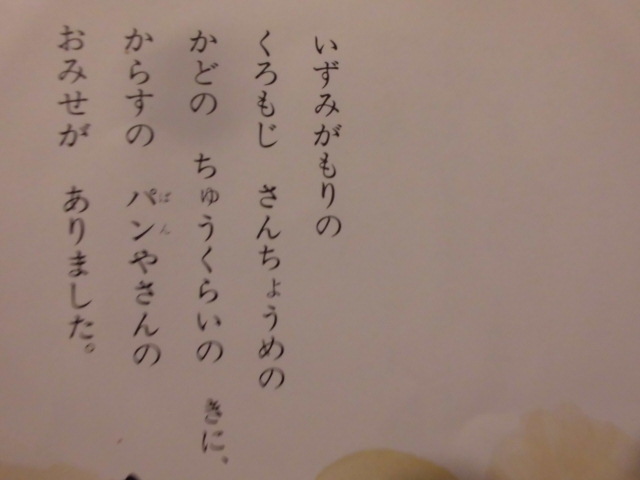 いずみがもりの
くろもじ　さんちょうめの
かどの　ちゅうくらいの　きに、
からすの　パンやさんの
おみせが　ありました。
ぱん